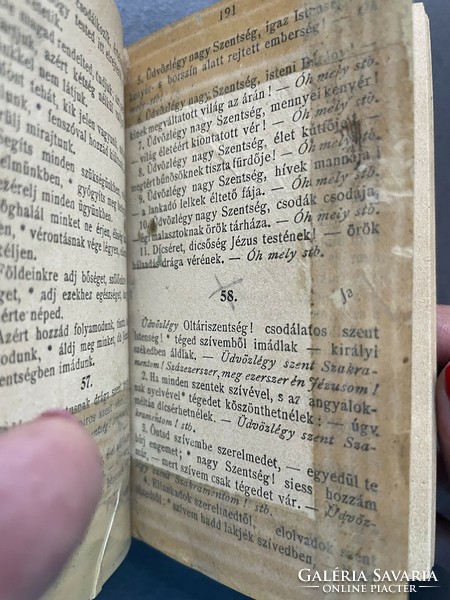 csodálkozik,
magad rendelted,
azért kétség nélkül
nem látjuk.
tehát, kik jelen vagyunk,
fenszóval hozzád kiáltunk
rül mirajtunk.
segíts minden szükségünkben,
elmünkben, * gyógyíts meg
ezérelj minden ügyünkben.
öghalál minket ne érjen,
• vérontásnak vége légyen,
eljen.
Földeinkre adj bőséget,
get, * adj ezekhez egészséget,
érte néped.
Azért hozzád folyamodunk,
kodunk, * áldj meg minket,
entségben imádunk.
57.
191
5. Üdvözlégy nagy Szentség, igaz
a borszin alatt rejtett emberség!
6. Üdvözlégy nagy Szentség, isteni
kinek megváltatott világ az árán! — Óh mely stb.
7. Üdvözlégy nagy Szentség, mennyei kenyér!
— világ életéért kiontatott vér! — Óh mely stb.
8. Üdvözlégy nagy Szentség, élet kútfője,
megtért bűnösöknek tiszta fürdője! — Óh mely stb.
9. Üdvözlégy nagy Szentség, hívek mannája
— a lankadó lelkek éltető fája. — Óh mely stb.
Üdvözlégy nagy Szentség, csodák csodája,
malasztoknak örök tárháza. — Óh mely stb.
11. Dícséret, dicsőség Jézus testének! — örök
drága vérének. — Óh mely stb.
58.
Ja
Üdvözlégy Oltáriszentség! csodálatos szent
Istenség! * téged szívemből imádlak — királyi
székedben áldlak. — Üdvözlégy szent Szakra-
mentom! Százezerszer, meg ezerszer én Jézusom!
2. Ha minden szentek szívével, s az angyalok-
nak nyelvével * tégedet köszönthetnélek: — úgy
dicsérhetnélek. — Üdvözlégy szent Sza-
kramentom! stb.
3. Óntsd szívembe szerelmedet, — egyedül te
bőj engemet; * nagy Szentség! siess hozzám
már, — mert szívem csak tégedet vár. — Üdvöz-
légy szent Szakramentom! stb.
4. Ellankadok szerelmedtől! elolvadok
szívem hadd lakjék szívedben,
GALÉRIA SAVARIA
ONLINE PIACTÉR